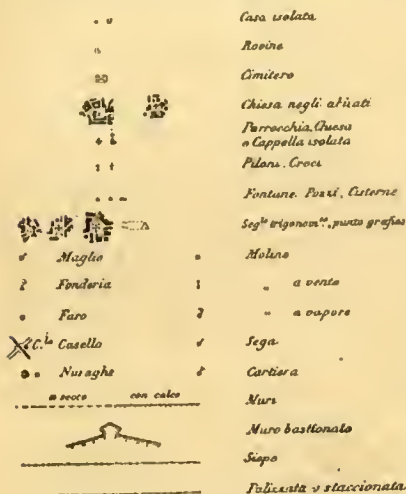 Casa isolata
Rovine
Cimitero
Chiesa negli abitati
Parrocchia, Chiesa
o Cappella isolata
Piloni, Croci
Fontane, Pozzi, Cisterne
Segle trigonomco, punto grafico
Maglio Molino
Fonderia " a vento
Faro " a vapore
C.la Casello Sega
Nuraghe Cartiera
a secco con calce Muri
Muro bastionato
Siepe
Palizzata o staccionata